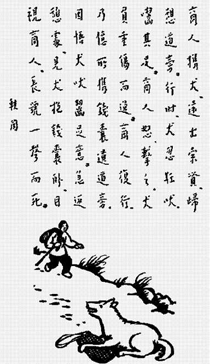 商人攜犬，遠出索債。歸
憩道旁。行時，犬忽狂吠，
齧其足。商人怒，擊之。犬
負重傷而逸。商人復行，
乃憶所攜錢囊遺道旁。
因悟犬吠齧足意。急返
憩處，見犬抱錢囊臥。目
視商人，長號一聲而死。